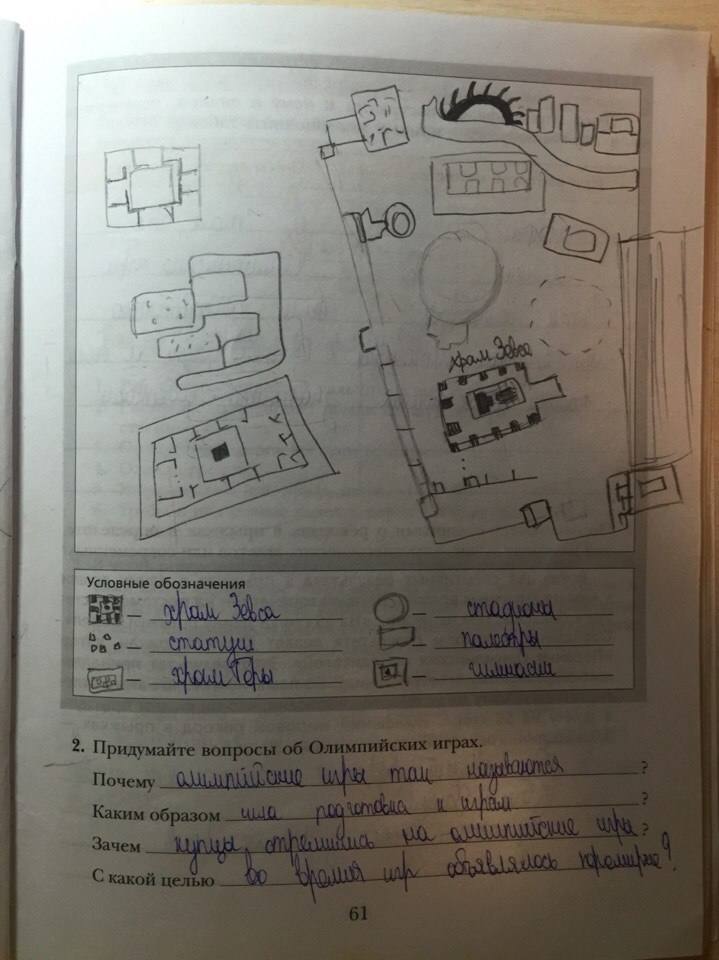 храм Зевса
Условные обозначения
— храм Зевса
— стадионы
— статуи
— палестры
— храм Геры
— гимнасии
2. Придумайте вопросы об Олимпийских играх.
Почему олимпийские игры так называются ?
Каким образом шла подготовка к играм ?
Зачем купцы стремились на олимпийские игры ?
С какой целью во время игр объявлялось перемирие ?
61